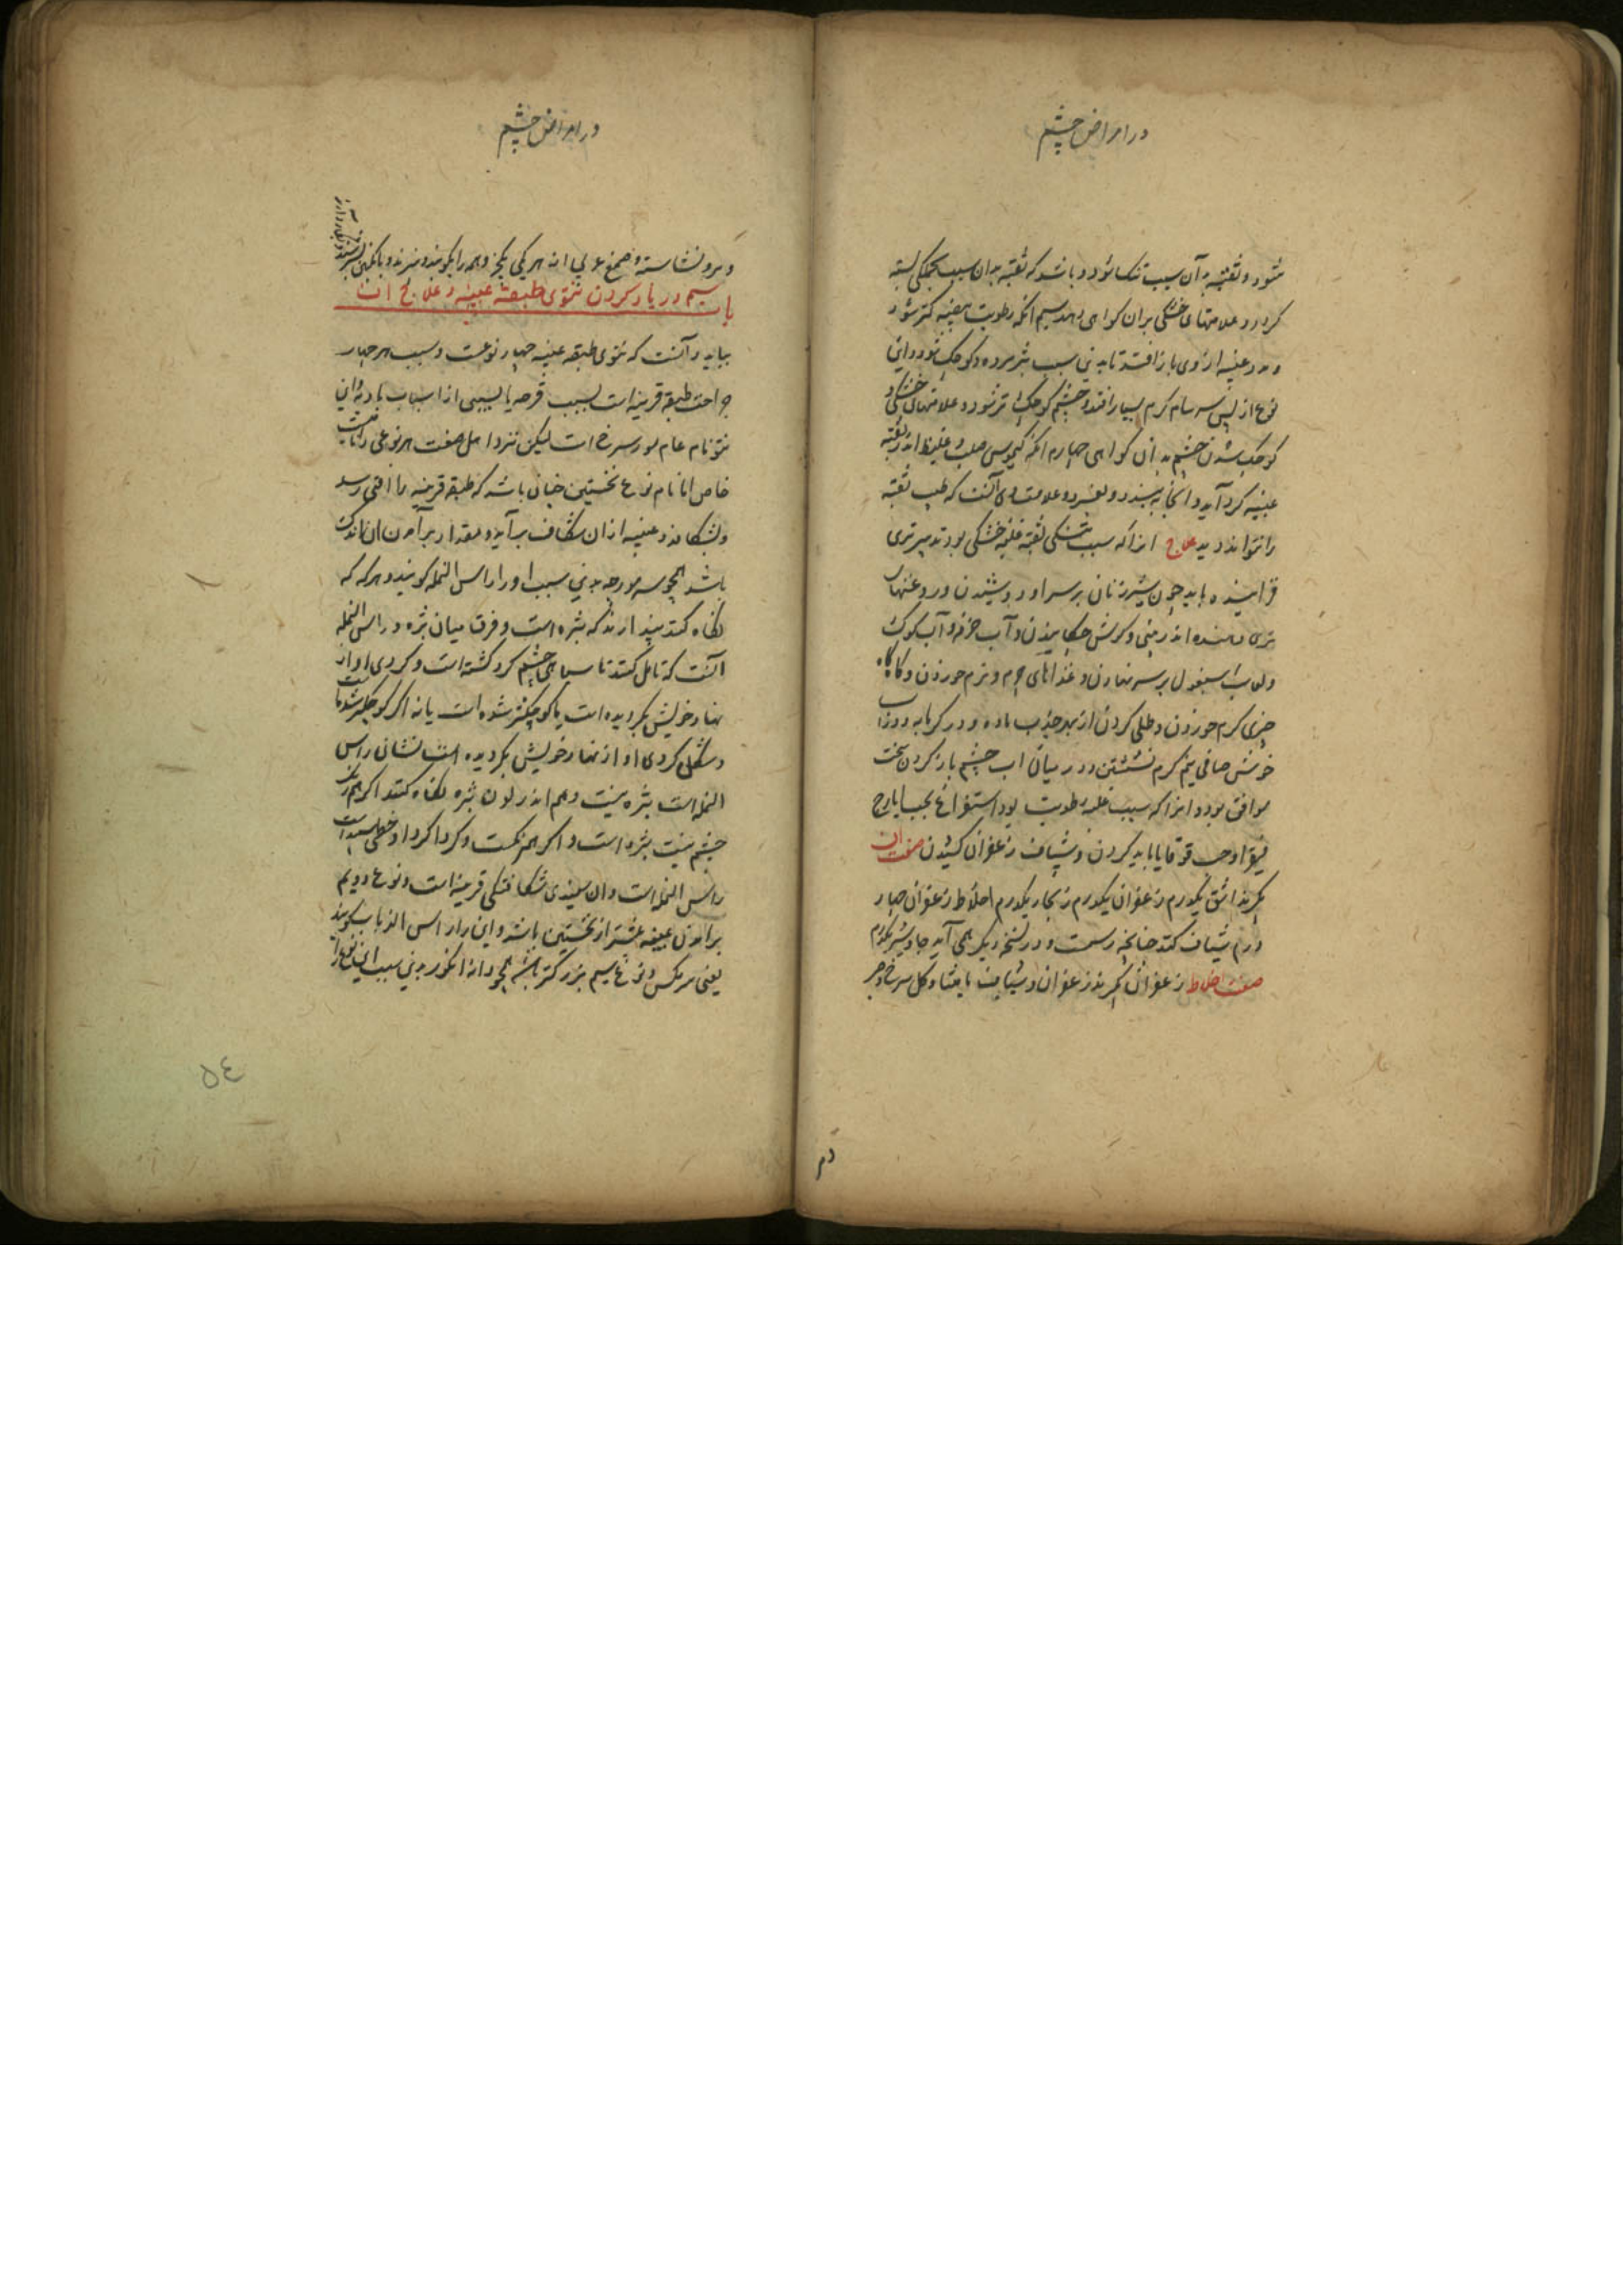 در امراض چشم
شود و ثقبه بدان سبب تنک شود و باشد که ثقبه بدان سبب بجملکی بسته
کردد و علامتهای خشکی بران کواهی دهد سیم انکه رطوبت بیضیه کمتر شود
و مدد عنبیه از وی باز افتد تا بدین سبب پژمرده و کوچک شود و این
نوع از پس سرسام کرم بسیار افتد و چشم کوچک تر شود و علامتهای خشکی و
کوچک شدن چشم بدان کواهی چهارم انکه کیموسی صلب و غلیظ اندر ثقبه
عنبیه کرد آید و آنجا بسته و بفسرد و علامت وی آنست که طبیب ثقبه
را نتواند دید علاج انرا که سبب تنکی ثقبه غلبه خشکی بود تدبیر تری
فزاینده باید چون شیر زنان بر سر او دوشیدن و روغنهای
تری دهنده اندر بینی و کوش چکانیدن و آب خرفه و آب کوک
و لعاب اسبغول بر سر نهادن و غذاهای چرم و نرم خوردن و کاه کاه
چیزی کرم خوردن و طلی کردن از بهر جذب ماده و در کرمابه و در آب
خوش صافی نیم کرم نشستن و در میان اب چشم باز کردن سخت
موافق بود و انرا که سبب غلبه رطوبت بود استفراغ بحب ایارج
فیقرا و حب قوقایا باید کردن و شیاف زعفران کشیدن صفت ان
بکیرند اشق یکدرم زعفران یکدرم زنجار یکدرم اخلاط زعفران چهار
درم شیاف کنند چنانچه رسمست و در نسخه دیکر همی آید جاوشیر یکدرم
صفت اخلاط زعفران بکیرند زعفران و شیاف مامیثا و کل سرخ و
در امراض چشم
و نشاسته و صمغ عربی از هر یکی یکجزو همه را بکوبند و ببزند و بانکبین بسرشند
باب سیم در یاد کردن نتوی طبقه عنبیه و علاج ان
بباید دانست که نتوی طبقه عنبیه چهار نوعست و سبب هر چهار
جراحت طبقه قرنیه است بسبب قرحه یا بسببی از اسباب بادیه و این
نتو نام عام مورسرخ است لیکن نزد اهل صنعت هر نوعی را نامیست
خاص اما نام نوع نخستین چنان باشد که طبقه قرنیه را افتی رسد
و بشکافد و عنبیه ازان شکاف برآید و مقدار برآمدن ان اندک
باشد همچو سر مورچه بدین سبب او را راس النمله کویند و هر که که
نکاه کنند پندارند که بثره است و فرق میان بثره و راس النمله
آنست که تامل کنند تا سیاهی چشم کرد کشته است و کردی او از
نهاد خویش بکردیده است یا کوچکتر شده است یا نه اکر کوچکتر شده است
و شکل کردی او از نهاد خویش بکردیده است نشان راس
النمله است بثره نیست و هم اندر لون بثره نکاه کنند اکر همرنک
چشم نیست بثره است و اکر همرنکست و کرد اکرد او خطی سپید است
راس النمله است و ان سپیدی شکافتکی قرنیه است و نوع دویم
برامدن عنبیه بیشتر از نخستین باشد و این را راس الذباب کویند
یعنی سر مکس و نوع سیم بزرکتر باشد همچو دانه انکور بدین سبب این نوع را
۵٤